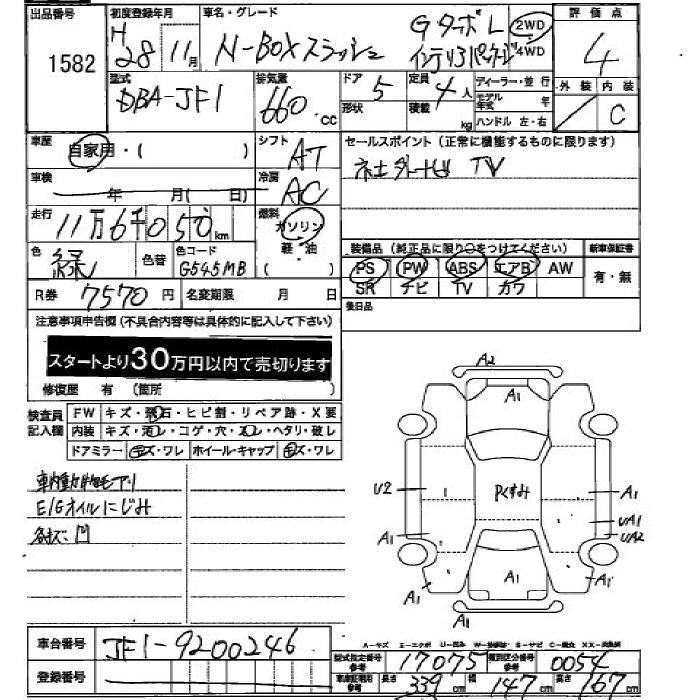 出品番号
1582
初度登録年月
H28 11月
車名・グレード
N-BOXスラッシュ
GターボL
インテリアパッケージ
2WD
4WD
評価点
4
外装 内装
C
型式
DBA-JF1
排気量
660 cc
ドア 5
形状
定員 4人
積載 kg
ディーラー・並行
モデル年式 年
ハンドル 左・右
車歴 自家用・( )
シフト AT
車検 年 月(日)
冷房 AC
走行 11万6千050km
燃料 ガソリン
軽・油
( )
色 緑
色替
色コード
G545MB
R券 7570円
名変期限 月 日
セールスポイント(正常に機能するものに限ります)
社外ナビ TV
装備品(純正品に限り○をつけてください)
新車保証書
PS PW ABS エアB AW
SR ナビ TV カワ
有・無
後日品
注意事項申告欄(不具合内容等は具体的に記入して下さい)
スタートより30万円以内で売切ります
修復歴 有(箇所
検査員記入欄
FW キズ・飛石・ヒビ割・リペア跡・X要
内装 キズ・汚レ・コゲ・穴・スレ・ヘタリ・破レ
ドアミラー キズ・ワレ ホイール・キャップ キズ・ワレ
車内動物毛アリ
E/Gオイルにじみ
各キズ凹
A2
A1
U2
Pくすみ
A1
UA1
UA2
A1
A1
A1
A1
A1
車台番号 JF1-9200246
登録番号
型式指定番号 参考 17075
類別区分番号 参考 0054
車庫証明用 参考 長さ 339cm 幅 147cm 高さ 167cm